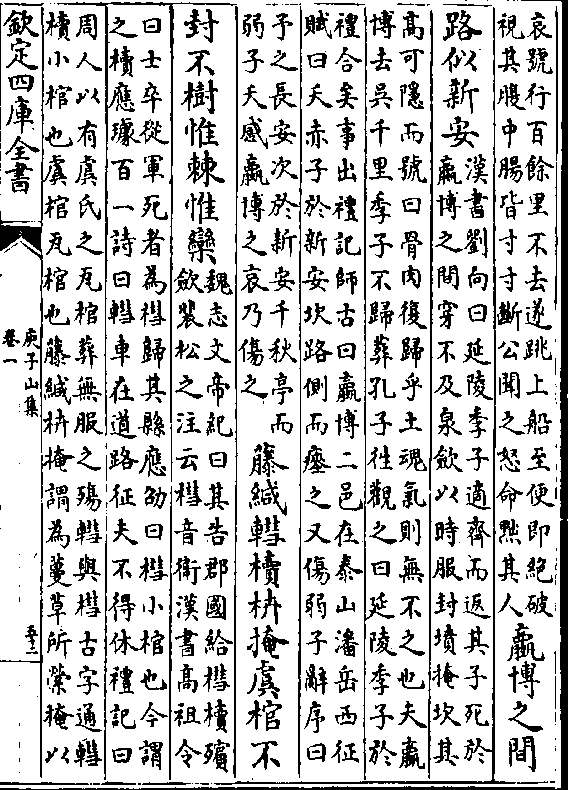 哀號行百餘里不去遂跳上船至便即絶破
視其腹中腸皆寸寸斷公聞之怒命黜其人
嬴博之間
路似新安
漢書劉向曰延陵季子適齊而返其子死於
嬴博之間穿不及泉歛以時服封墳掩坎其
高可隱而號曰骨肉復歸乎土魂氣則無不之也夫嬴
博去吳千里季子不歸葬孔子往觀之曰延陵季子於
禮合矣事出禮記師古曰嬴博二邑在泰山潘岳西征
賦曰夭赤子於新安坎路側而瘞之又傷弱子辭序曰
予之長安次於新安千秋亭而
弱子夭感嬴博之哀乃傷之
藤緘轊櫝枿掩虞棺不
封不樹惟棘惟欒
魏志文帝紀曰其告郡國給槥櫝殯
歛裴松之注云槥音衛漢書高祖令
曰士卒從軍死者為槥歸其縣應劭曰槥小棺也今謂
之櫝應璩百一詩曰轊車在道路征夫不得休禮記曰
周人以有虞氏之瓦棺葬無服之殤轊與槥古字通轊
櫝小棺也虞棺瓦棺也藤緘枿掩謂為蔓草所縈掩以
欽定四庫全書
庾子山集
卷一